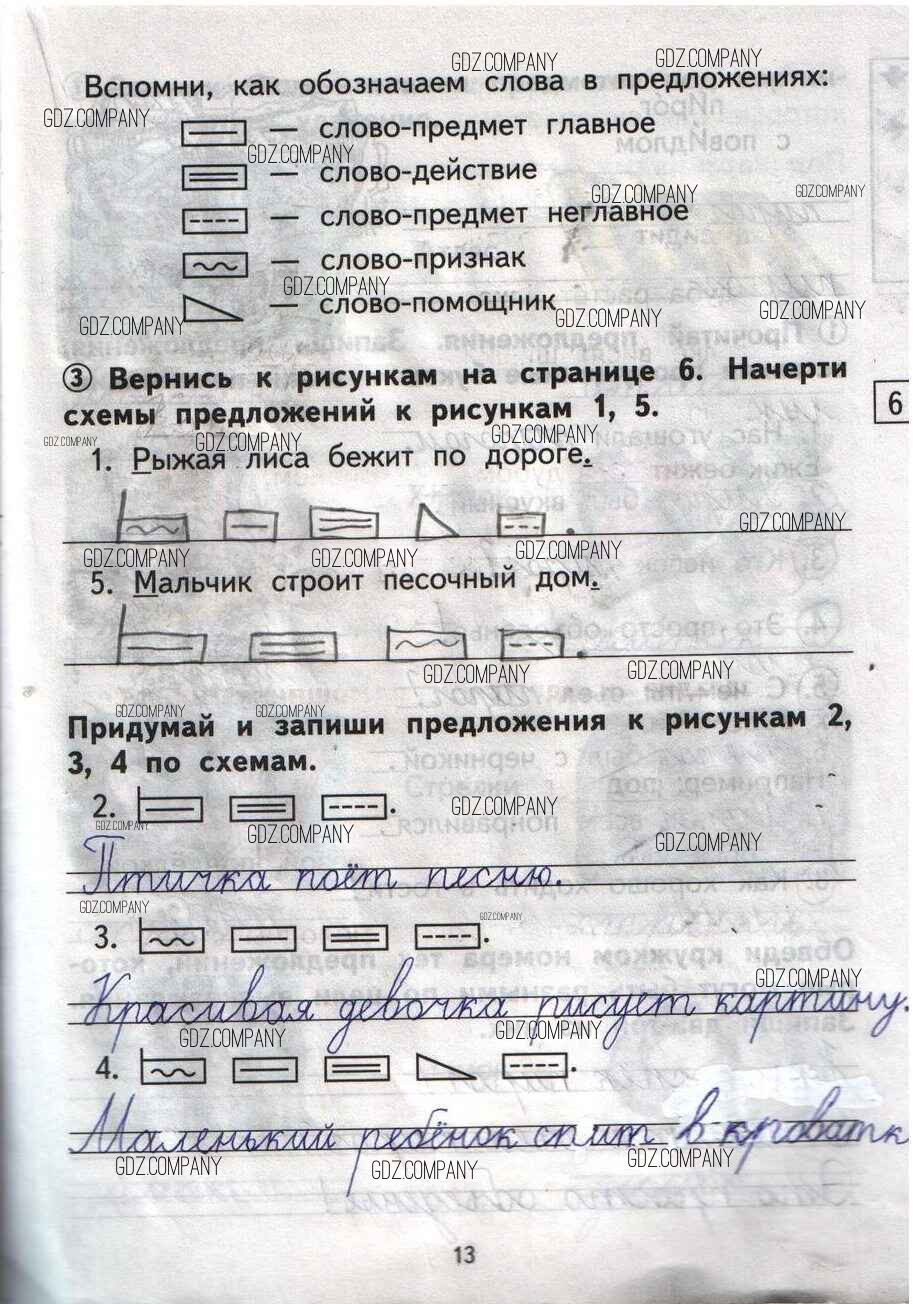 GDZ.COMPANY GDZ.COMPANY
Вспомни, как обозначаем слова в предложениях:
GDZ.COMPANY
— слово-предмет главное
GDZ.COMPANY
— слово-действие
GDZ.COMPANY GDZ.COMPANY
— слово-предмет неглавное
— слово-признак
GDZ.COMPANY
— слово-помощник
GDZ.COMPANY GDZ.COMPANY GDZ.COMPANY
③ Вернись к рисункам на странице 6. Начерти
схемы предложений к рисункам 1, 5.
6
GDZ.COMPANY GDZ.COMPANY GDZ.COMPANY
1. Рыжая лиса бежит по дороге.
GDZ.COMPANY
GDZ.COMPANY GDZ.COMPANY GDZ.COMPANY
5. Мальчик строит песочный дом.
GDZ.COMPANY GDZ.COMPANY
GDZ.COMPANY GDZ.COMPANY
Придумай и запиши предложения к рисункам 2,
3, 4 по схемам.
2. .
GDZ.COMPANY
GDZ.COMPANY GDZ.COMPANY GDZ.COMPANY
Птичка поёт песню.
GDZ.COMPANY GDZ.COMPANY
3. .
GDZ.COMPANY
Красивая девочка рисует картину.
GDZ.COMPANY GDZ.COMPANY
4. .
Маленький ребёнок спит в кроватк
GDZ.COMPANY GDZ.COMPANY GDZ.COMPANY
13